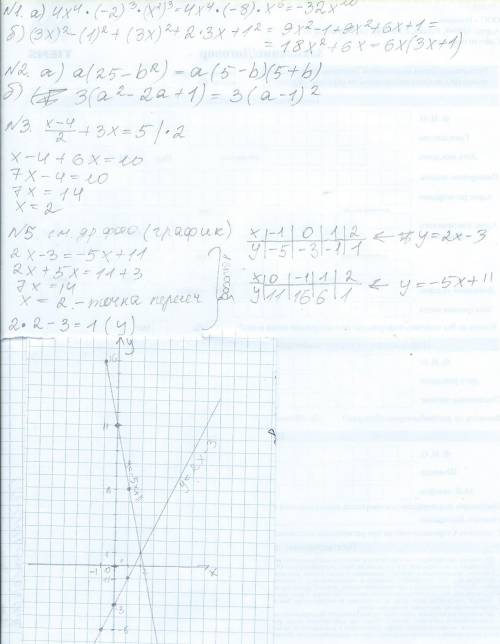 N1. а) 4x⁴·(-2)³·(x²)³=4x⁴·(-8)·x⁶=-32x¹⁰
б) (3x)²-(1)²+(3x)²+2·3x+1²=9x²-1+9x²+6x+1=
=18x²+6x=6x(3x+1)
N2. а) a(25-b²)=a(5-b)(5+b)
б) 3(a²-2a+1)=3(a-1)²
N3. (x-4)/2+3x=5 |·2
x-4+6x=10
7x-4=10
7x=14
x=2
N5 см. др фото (график)
2x-3=-5x+11
2x+5x=11+3
7x=14
x=2 - точка пересеч
2·2-3=1 (y)
x|-1|0|1|2
y|-5|-3|-1|1 ← y=2x-3
x|0|-1|1|2
y|11|16|6|1 ← y=-5x+11
y
16
11
y=-5x+11
y=2x-3
8
-1 0 1 2 x
-1
-3
-5